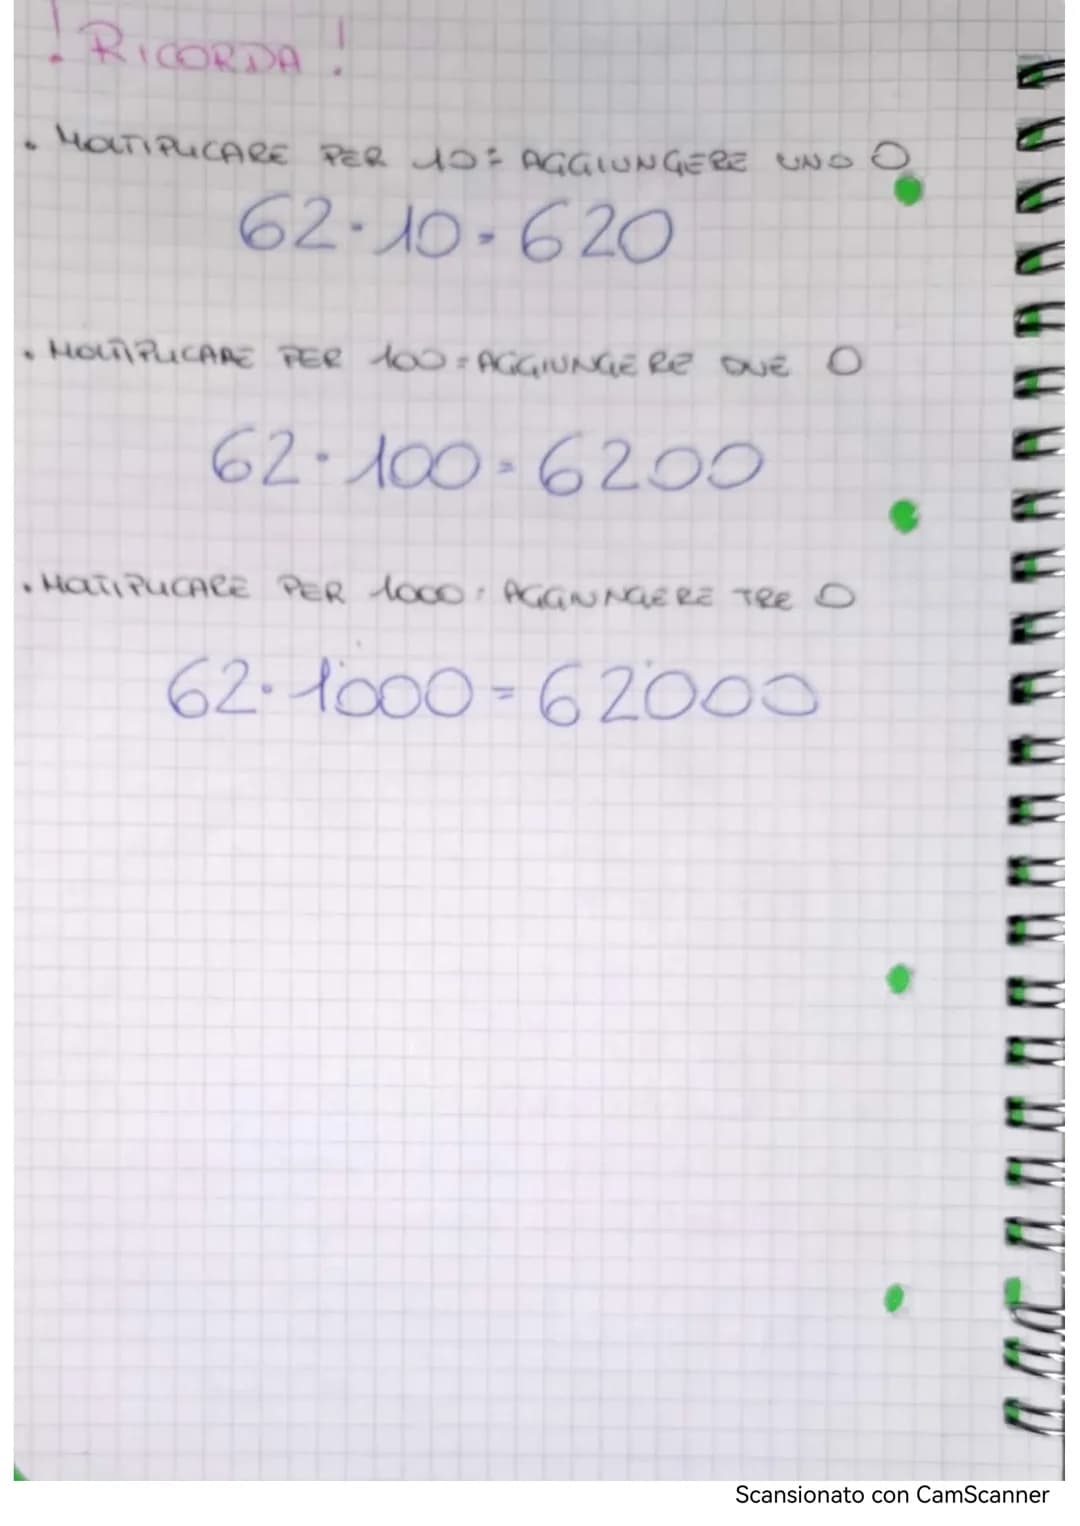 ! RICORDA !
• MOLTIPLICARE PER 10 = AGGIUNGERE UNO 0
62 · 10 = 620
• MOLTIPLICARE PER 100 = AGGIUNGERE DUE 0
62 · 100 = 6200
• MOLTIPLICARE PER 1000 = AGGIUNGERE TRE 0
62 · 1˙000 = 62˙000
Scansionato con CamScanner